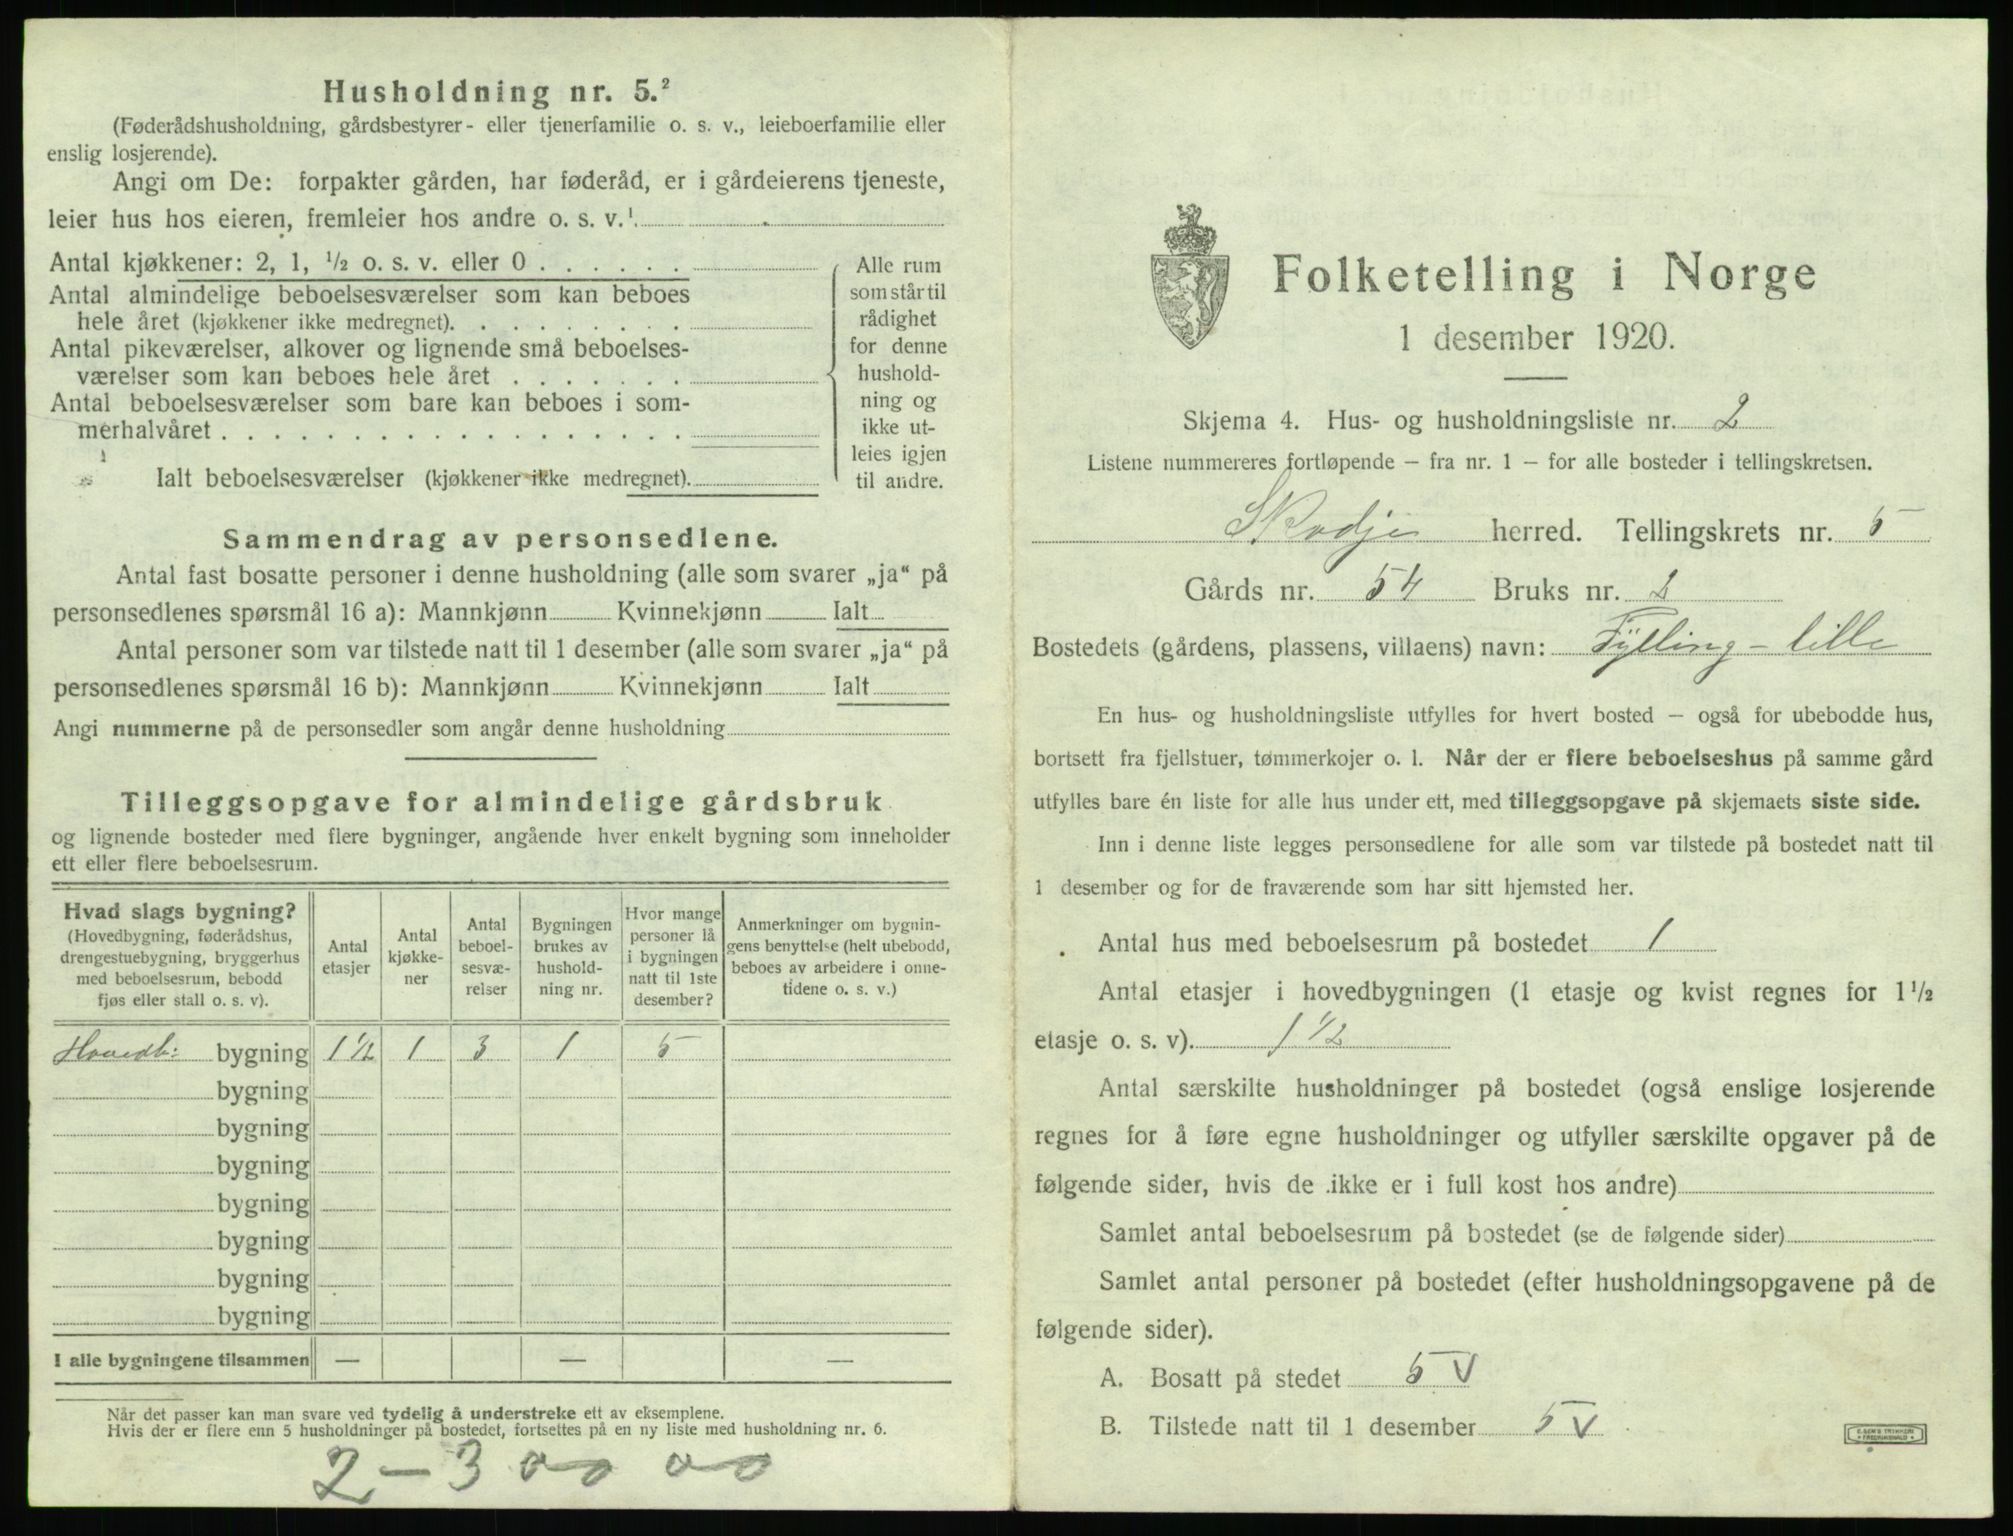 Husholdning nr. 5.²
(Føderådshusholdning, gårdsbestyrer- eller tjenerfamilie o. s. v., leieboerfamilie eller
enslig losjerende).
Angi om De: forpakter gården, har føderåd, er i gårdeierens tjeneste,
leier hus hos eieren, fremleier hos andre o. s. v.¹
Antal kjøkkener: 2, 1, ½ o. s. v. eller 0 . . . . . .
Antal almindelige beboelsesværelser som kan beboes
hele året (kjøkkener ikke medregnet). . . . . . . . .
Antal pikeværelser, alkover og lignende små beboelses-
værelser som kan beboes hele året . . . . . . .
Antal beboelsesværelser som bare kan beboes i som-
merhalvåret . . . . . . . . . . . . . . . . . .
Ialt beboelsesværelser (kjøkkener ikke medregnet).
Alle rum
som står til
rådighet
for denne
hushold-
ning og
ikke ut-
leies igjen
til andre.
Sammendrag av personsedlene.
Antal fast bosatte personer i denne husholdning (alle som svarer „ja“ på
personsedlenes spørsmål 16 a): Mannkjønn Kvinnekjønn Ialt
Antal personer som var tilstede natt til 1 desember (alle som svarer „ja“ på
personsedlenes spørsmål 16 b): Mannkjønn Kvinnekjønn Ialt
Angi nummerne på de personsedler som angår denne husholdning
Tilleggsopgave for almindelige gårdsbruk
og lignende bosteder med flere bygninger, angående hver enkelt bygning som inneholder
ett eller flere beboelsesrum.
Hvad slags bygning?
(Hovedbygning, føderådshus,
drengestuebygning, bryggerhus
med beboelsesrum, bebodd
fjøs eller stall o. s. v).
Antal
etasjer
Antal
kjøkke-
ner
Antal
beboel-
sesvæ-
relser
Bygningen
brukes av
hushold-
ning nr.
Hvor mange
personer lå
i bygningen
natt til 1ste
desember?
Anmerkninger om bygnin-
gens benyttelse (helt ubebodd,
beboes av arbeidere i onne-
tidene o. s. v.)
Hovedb: bygning 1 ½ 1 3 1 5
bygning
bygning
bygning
bygning
bygning
bygning
bygning
I alle bygningene tilsammen — — —
Når det passer kan man svare ved tydelig å understreke ett av eksemplene.
Hvis der er flere enn 5 husholdninger på bostedet, fortsettes på en ny liste med husholdning nr. 6.
2 - 3 00 00
Folketelling i Norge
1 desember 1920.
Skjema 4. Hus- og husholdningsliste nr. 2
Listene nummereres fortløpende – fra nr. 1 – for alle bosteder i tellingskretsen.
Skodje herred. Tellingskrets nr. 5
Gårds nr. 54 Bruks nr. 2
Bostedets (gårdens, plassens, villaens) navn: Fylling - lille
En hus- og husholdningsliste utfylles for hvert bosted – også for ubebodde hus,
bortsett fra fjellstuer, tømmerkojer o. l. Når der er flere beboelseshus på samme gård
utfylles bare én liste for alle hus under ett, med tilleggsopgave på skjemaets siste side.
Inn i denne liste legges personsedlene for alle som var tilstede på bostedet natt til
1 desember og for de fraværende som har sitt hjemsted her.
Antal hus med beboelsesrum på bostedet 1
Antal etasjer i hovedbygningen (1 etasje og kvist regnes for 1½
etasje o. s. v). 1 ½
Antal særskilte husholdninger på bostedet (også enslige losjerende
regnes for å føre egne husholdninger og utfyller særskilte opgaver på de
følgende sider, hvis de ikke er i full kost hos andre)
Samlet antal beboelsesrum på bostedet (se de følgende sider)
Samlet antal personer på bostedet (efter husholdningsopgavene på de
følgende sider).
A. Bosatt på stedet 5 V
B. Tilstede natt til 1 desember 5 V